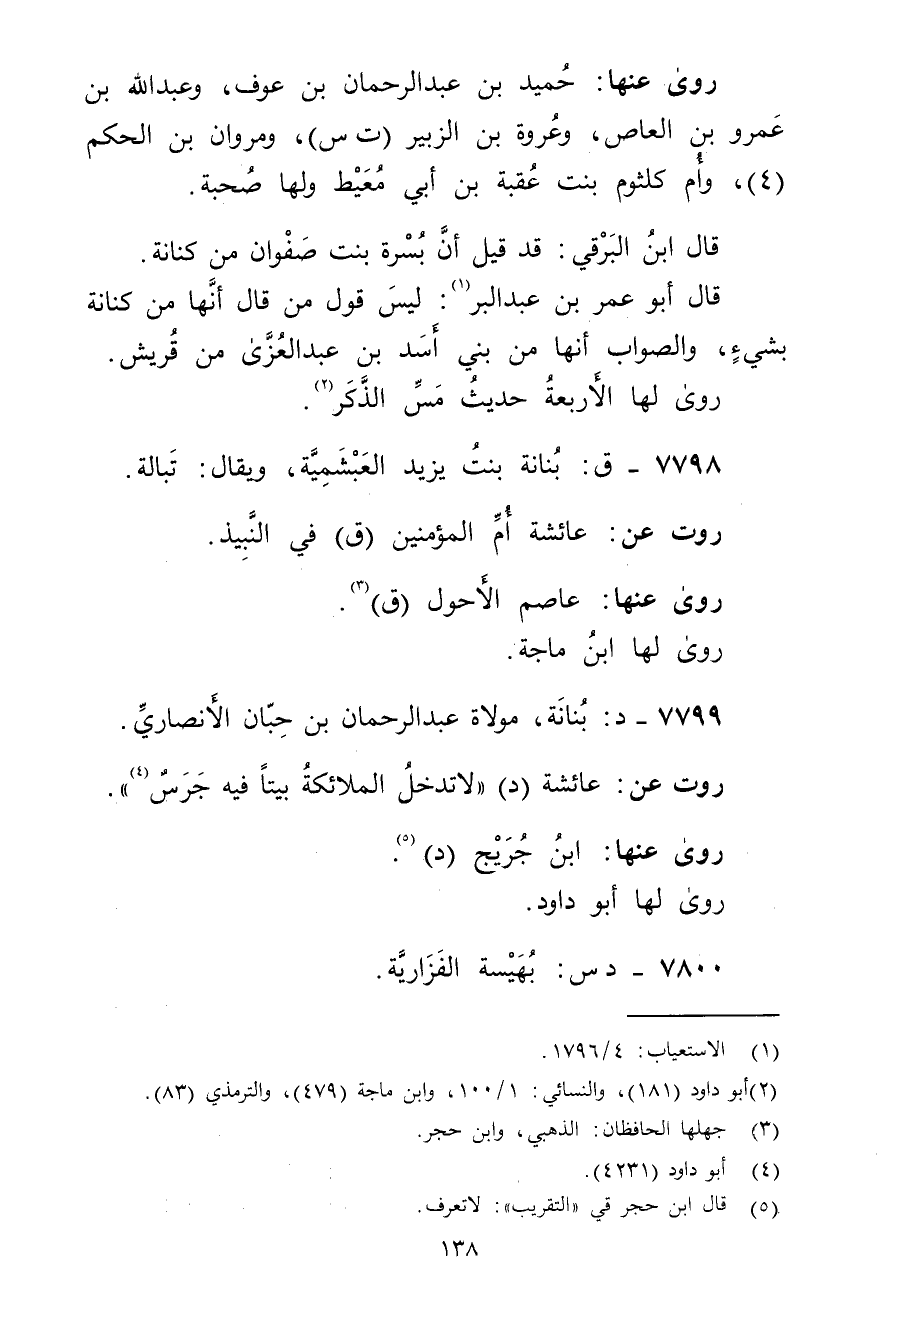 روىٰ عنها: حُميد بن عبدالرحمان بن عوف، وعبدالله بن
عَمرو بن العاص، وعُروة بن الزبير (ت س)، ومروان بن الحكم
(٤)، وأُم كلثوم بنت عُقبة بن أبي مُعَيْط ولها صُحبة.
قال ابنُ البَرْقي: قد قيل أنَّ بُسْرة بنت صَفْوان من كنانة.
قال أبو عمر بن عبدالبر(١): ليسَ قول من قال أنَّها من كنانة
بشيءٍ، والصواب أنها من بني أَسَد بن عبدالعُزَّىٰ من قُريش.
روىٰ لها الأَربعةُ حديثُ مَسِّ الذَّكَر(٢).
٧٧٩٨ ـ ق: بُنانة بنتُ يزيد العَبْشَمِيَّة، ويقال: تَبالة.
روت عن: عائشة أُمِّ المؤمنين (ق) في النَّبِيذ.
روىٰ عنها: عاصم الأَحول (ق)(٣).
روىٰ لها ابنُ ماجة.
٧٧٩٩ ـ د: بُنانَة، مولاة عبدالرحمان بن حِبّان الأَنصاريِّ.
روت عن: عائشة (د) «لاتدخلُ الملائكةُ بيتاً فيه جَرَسٌ(٤)».
روىٰ عنها: ابنُ جُرَيْج (د)(٥).
روىٰ لها أبو داود.
٧٨٠٠ ـ د س: بُهَيْسة الفَزَاريَّة.
(١) الاستعياب: ٤/١٧٩٦.
(٢)أبو داود (١٨١)، والنسائي: ١/١٠٠، وابن ماجة (٤٧٩)، والترمذي (٨٣).
(٣) جهلها الحافظان: الذهبي، وابن حجر.
(٤) أبو داود (٤٢٣١).
(٥) قال ابن حجر في «التقريب»: لاتعرف.
١٣٨